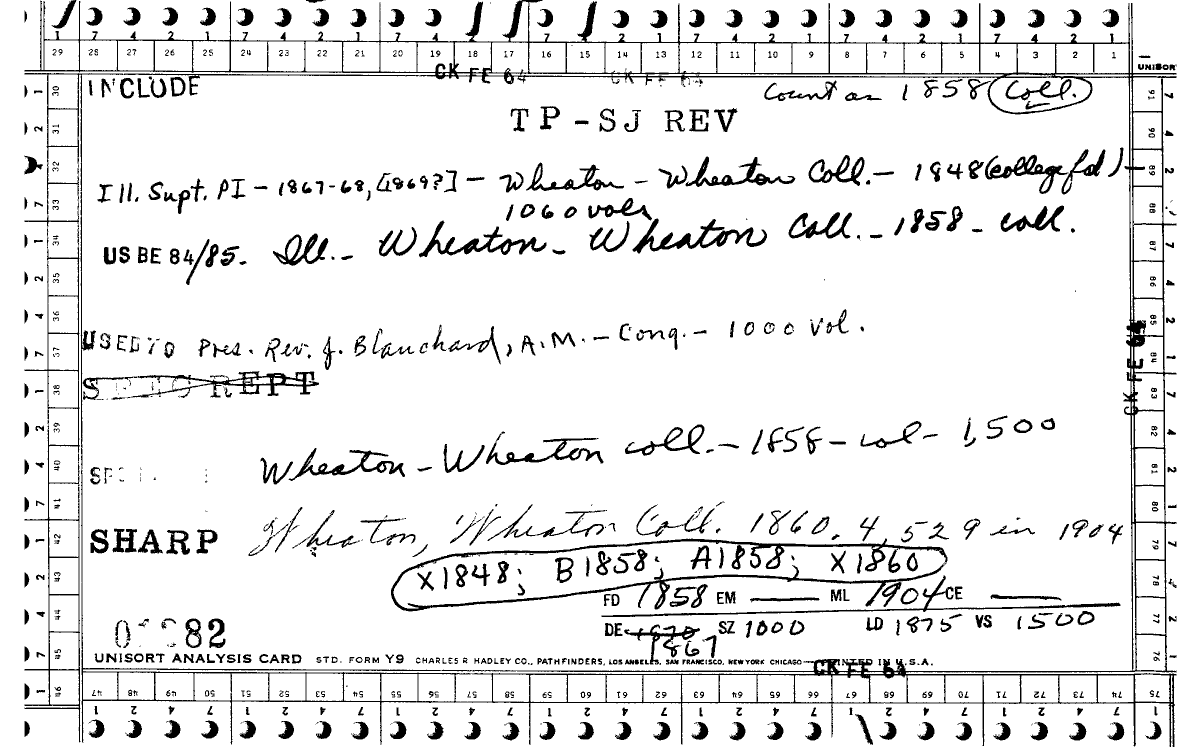 7 4 2 1 7 4 2 1 7 4 2 1 7 4 2 1 7 4 2 1 7 4 2 1 7 4 2 1
29 28 27 26 25 24 23 22 21 20 19 18 17 16 15 14 13 12 11 10 9 8 7 6 5 4 3 2 1
CK FE 64 CK FE 64 UNISOR
INCLUDE Count as 1858 (Coll.)
TP-SJ REV
Ill. Supt. PI - 1867-68, [1869?] - Wheaton - Wheaton Coll. - 1848 (college fd)
1060 vols
US BE 84/85. Ill. - Wheaton - Wheaton Coll. - 1858 - coll.
USED TO Pres. Rev. J. Blanchard, A.M. - Cong. - 1000 vol.
SPEC REPT
CK FE 64
Wheaton - Wheaton coll. - 1858 - col - 1,500
SHARP Wheaton, Wheaton Coll. 1860. 4,529 in 1904
X1848; B1858; A1858; X1860
FD 1858 EM — ML 1904 CE —
DE 1870 SZ 1000 LD 1875 VS 1500
1867
82
UNISORT ANALYSIS CARD STD. FORM Y9 CHARLES R. HADLEY CO., PATHFINDERS, LOS ANGELES, SAN FRANCISCO, NEW YORK CHICAGO PRINTED IN U.S.A.
CK FE 64
46 47 48 49 50 51 52 53 54 55 56 57 58 59 60 61 62 63 64 65 66 67 68 69 70 71 72 73 74 75